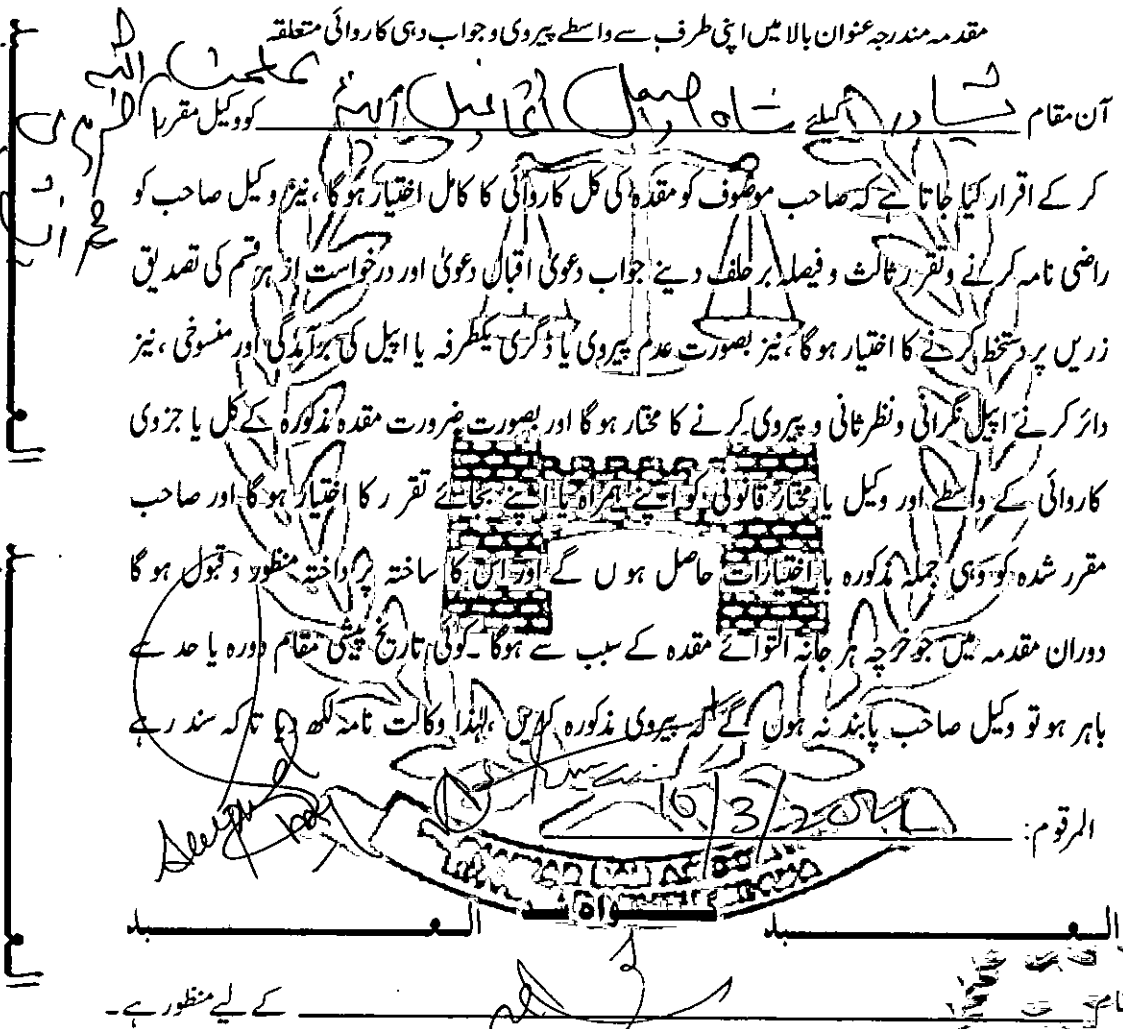 مقدمہ مندرجہ عنوان بالا میں اپنی طرف سے واسطے پیروی و جواب دہی کاروائی متعلقہ
آن مقام پشاور کیلئے شاہ فیصل کو وکیل مقرر
کر کے اقرار کیا جاتا ہے کہ صاحب موصوف کو مقدہ کی کل کاروائی کا کامل اختیار ہو گا ، نیز وکیل صاحب کو
راضی نامہ کرنے وتقرر ثالث و فیصلہ بر حلف دینے جواب دعویٰ اقبال دعویٰ اور درخواست از ہر قسم کی تصدیق
زریں پر دستخط کرنے کا اختیار ہو گا ، نیز بصورت عدم پیروی یا ڈگری یکطرفہ یا اپیل کی برآمدگی اور منسوخی ، نیز
دائر کرنے اپیل نگرانی ونظر ثانی و پیروی کرنے کا مختار ہو گا اور بصورت ضرورت مقدہ مذکورہ کے کل یا جزوی
کاروائی کے واسطے اور وکیل یا مختار قانونی کو اپنے ہمراہ یا اپنے بجائے تقرر کا اختیار ہو گا اور صاحب
مقرر شدہ کو وہی جملہ مذکورہ با اختیارات حاصل ہو ں گے اور اس کا ساختہ پر داختہ منظور و قبول ہو گا
دوران مقدمہ میں جو خرچہ ہر جانہ التوائے مقدہ کے سبب سے ہوگا ۔ کوئی تاریخ پیشی مقام دورہ یا حد سے
باہر ہو تو وکیل صاحب پابند نہ ہوں گے کہ پیروی مذکورہ کریں ، لہٰذا وکالت نامہ لکھ دیا تاکہ سند رہے
المرقوم: 16/3/2021
العبد گواہ شد العبد
کے لیے منظور ہے ۔